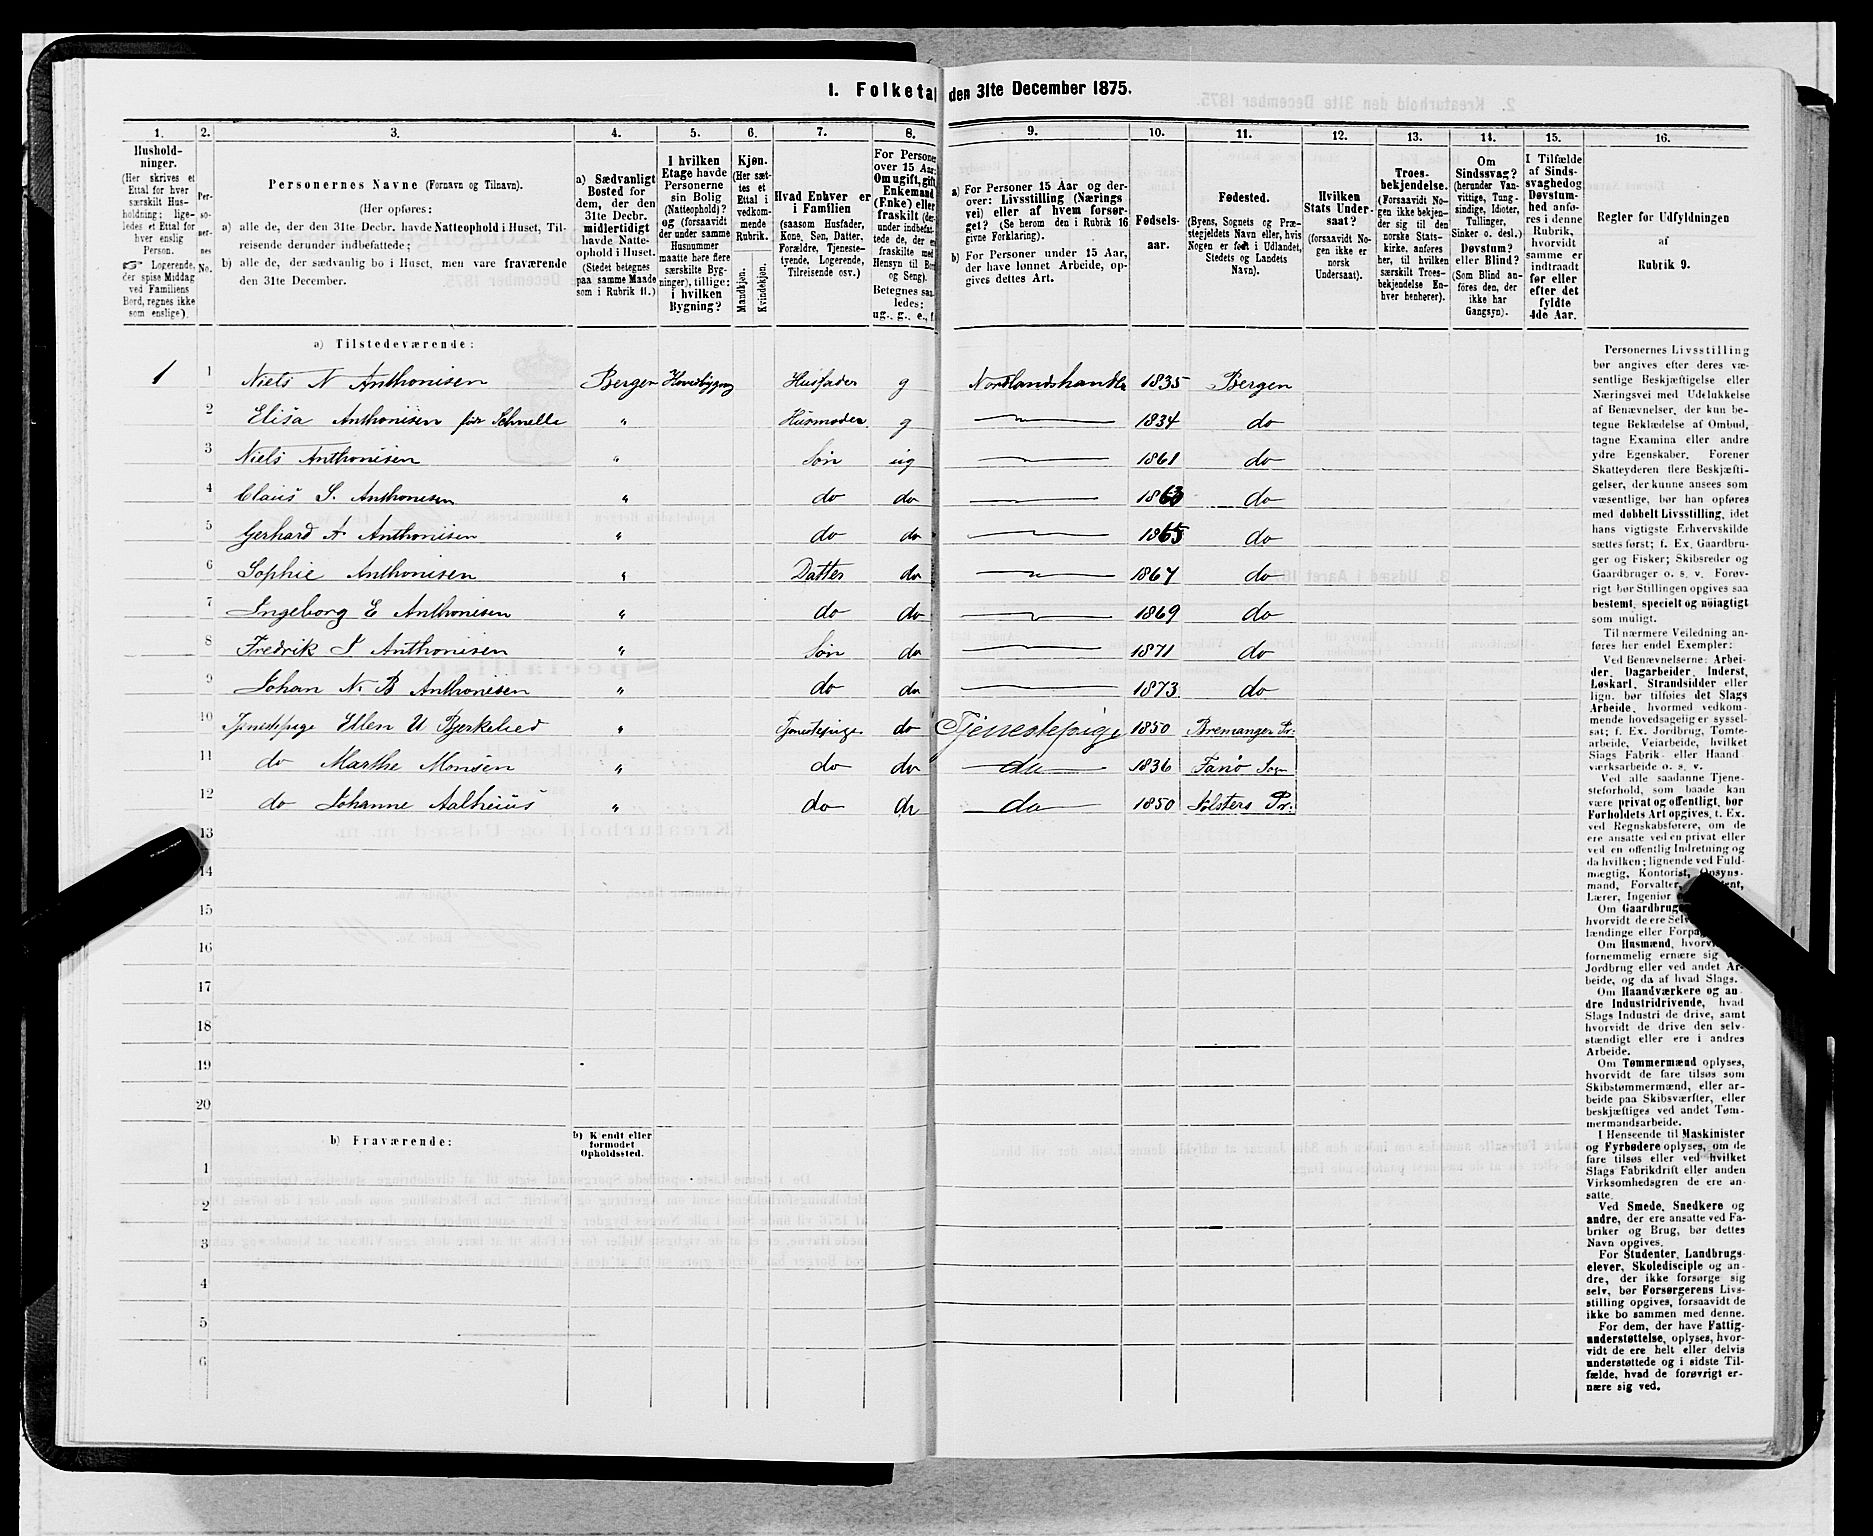 1. Folketal den 31te December 1875.
1. 2. 3. 4. 5. 6. 7. 8. 9. 10. 11. 12. 13. 14. 15. 16.
Hushold-
ninger.
(Her skrives et
Ettal for hver
særskilt Hus-
holdning; lige-
ledes et Ettal for
hver enslig
Person.
☞ Logerende,
der spise Middag
ved Familiens
Bord, regnes ikke
som enslige).
Per-
so-
ner-
nes
No.
Personernes Navne (Fornavn og Tilnavn).
(Her opføres:
a) alle de, der den 31te Decbr. havde Natteophold i Huset, Til-
reisende derunder indbefattede;
b) alle de, der sædvanlig bo i Huset, men vare fraværende
den 31te December.
a) Sædvanligt
Bosted for
dem, der den
31te Decbr.
midlertidigt
havde Natte-
ophold i Huset.
(Stedet betegnes
paa samme Maade
som i Rubrik 11.)
I hvilken
Etage havde
Personerne
sin Bolig
(Natteophold)?
og (forsaavidt
der under samme
Husnummer
maatte høre flere
særskilte Byg-
ninger), tillige:
i hvilken
Bygning?
Kjøn.
(Her sæt-
tes et
Ettal i
vedkom-
mende
Rubrik.
Mandkjøn.
Kvindekjøn.
Hvad Enhver er
i Familien
(saasom Husfader,
Kone, Søn, Datter,
Forældre, Tjeneste-
tyende, Logerende,
Tilreisende osv.)
For Personer
over 15 Aar:
Om ugift, gift,
Enkemand
(Enke) eller
fraskilt (der-
under indbefat-
tede de, der ere
fraskilte med
Hensyn til Bord
og Seng).
Betegnes saa-
ledes:
ug., g., e., f.
a) For Personer 15 Aar og der-
over: Livsstilling (Nærings
vei) eller af hvem forsør-
get? (Se herom den i Rubrik 16
givne Forklaring).
b) For Personer under 15 Aar,
der have lønnet Arbeide, op-
gives dettes Art.
Fødsels-
aar.
Fødested.
(Byens, Sognets og Præ-
stegjeldets Navn eller, hvis
Nogen er født i Udlandet,
Stedets og Landets
Navn).
Hvilken
Stats Under-
saat?
(forsaavidt No-
gen ikke er
norsk
Undersaat).
Troes-
bekjendelse.
(Forsaavidt No-
gen ikke bekjen-
der sig til den
norske Stats-
kirke, anføres
her, til hvilken
særskilt Troes-
bekjendelse En-
hver henhører).
Om
Sindssvag?
(herunder Van-
vittige, Tung-
sindige, Idioter,
Tullinger,
Sinker o. desl.)
Døvstum?
eller Blind?
(Som Blind an-
føres den, der
ikke har
Gangsyn).
I Tilfælde
af Sinds-
svaghed og
Døvstum-
hed anfø-
res i denne
Rubrik,
hvorvidt
samme er
indtraadt
før eller
efter det
fyldte
4de Aar.
Regler for Udfyldningen
af
Rubrik 9.
a) Tilstedeværende:
1 1 Niels N Anthonisen Bergen Hovedbygng Husfader g Nordlandshandler 1835 Bergen
2 Elisa Anthonisen født Schnelle " Husmoder g 1834 do
3 Niels Anthonisen " Søn ug 1861 do
4 Claus S. Anthonisen " do do 1863 do
5 Gerhard A Anthonisen " do do 1865 do
6 Sophie Anthonisen " Datter do 1867 do
7 Ingeborg E Anthonisen " do do 1869 do
8 Fredrik S Anthonisen " Søn do 1871 do
9 Johan N. B Anthonisen " do do 1873 do
10 Tjenestepige Ellen U Bjerkelied " Tjenestepige do Tjenestepige 1850 Bremanger Pr:
11 do Marthe Monsen " do do do 1836 Fanø Sogn
12 do Johanne " do do do 1850 Pr:
13
14
15
16
17
18
19
20
b) Fraværende:
b) Kjendt eller
formodet
Opholdssted.
1
2
3
4
5
6
Personernes Livsstilling
bør angives efter deres væ-
sentlige Beskjæftigelse eller
Næringsvei med Udelukkelse
af Benævnelser, der kun be-
tegne Beklædelse af Ombud,
tagne Examina eller andre
ydre Egenskaber. Forener
Skatteyderen flere Beskjæfti-
gelser, der kunne ansees som
væsentlige, bør han opføres
med dobbelt Livsstilling, idet
hans vigtigste Erhvervskilde
sættes først; f. Ex. Gaardbru-
ger og Fisker; Skibsreder og
Gaardbruger o. s. v. Forøv-
rigt bør Stillingen opgives saa
bestemt, specielt og nøiagtigt
som muligt.
Til nærmere Veiledning an-
føres her endel Exempler:
Ved Benævnelserne: Arbei-
der, Dagarbeider, Inderst,
Løskarl, Strandsidder eller
lign. bør tilføies det Slags
Arbeide, hvormed vedkom-
mende hovedsagelig er syssel-
sat; f. Ex. Jordbrug, Tomte-
arbeide, Veiarbeide, hvilket
Slags Fabrik- eller Haand
værksarbeide o. s. v.
Ved alle saadanne Tjene-
steforhold, som baade kan
være privat og offentligt, bør
Forholdets Art opgives, t. Ex.
ved Regnskabsførere, om de
ere ansatte ved en privat eller
ved en offentlig Indretning og
da hvilken; lignende ved Fuld-
mægtig, Kontorist, Opsyns-
mand, Forvalter,
Lærer, Ingeniør
Om Gaardbrug
hvorvidt de ere Selv
lændinge eller Forpa
Om Husmænd, hvorv
fornemmelig ernære sig
Jordbrug eller ved andet Ar-
beide, og da af hvad Slags.
Om Haandværkere og an-
dre Industridrivende, hvad
Slags Industri de drive, samt
hvorvidt de drive den selv-
stændigt eller ere i andres
Arbeide.
Om Tømmermænd oplyses,
hvorvidt de fare tilsøs som
Skibstømmermænd, eller ar-
beide paa Skibsværfter, eller
beskjæftiges ved andet Tøm-
mermandsarbeide.
I Henseende til Maskinister
og Fyrbødere oplyses, om de
fare tilsøs eller ved hvilket
Slags Fabrikdrift eller anden
Virksomhedsgren de ere an-
satte.
Ved Smede, Snedkere og
andre, der ere ansatte ved Fa-
briker og Brug, bør dettes
Navn opgives.
For Studenter, Landbrugs-
elever, Skoledisciple og an-
dre, der ikke forsørge sig
selv, bør Forsørgerens Livs-
stilling opgives, forsaavidt de
ikke bo sammen med denne.
For dem, der have Fattig-
understøttelse, oplyses, hvor-
vidt de ere helt eller delvis
understøttede og i sidste Til-
fælde, hvad de forøvrigt er-
nære sig ved.